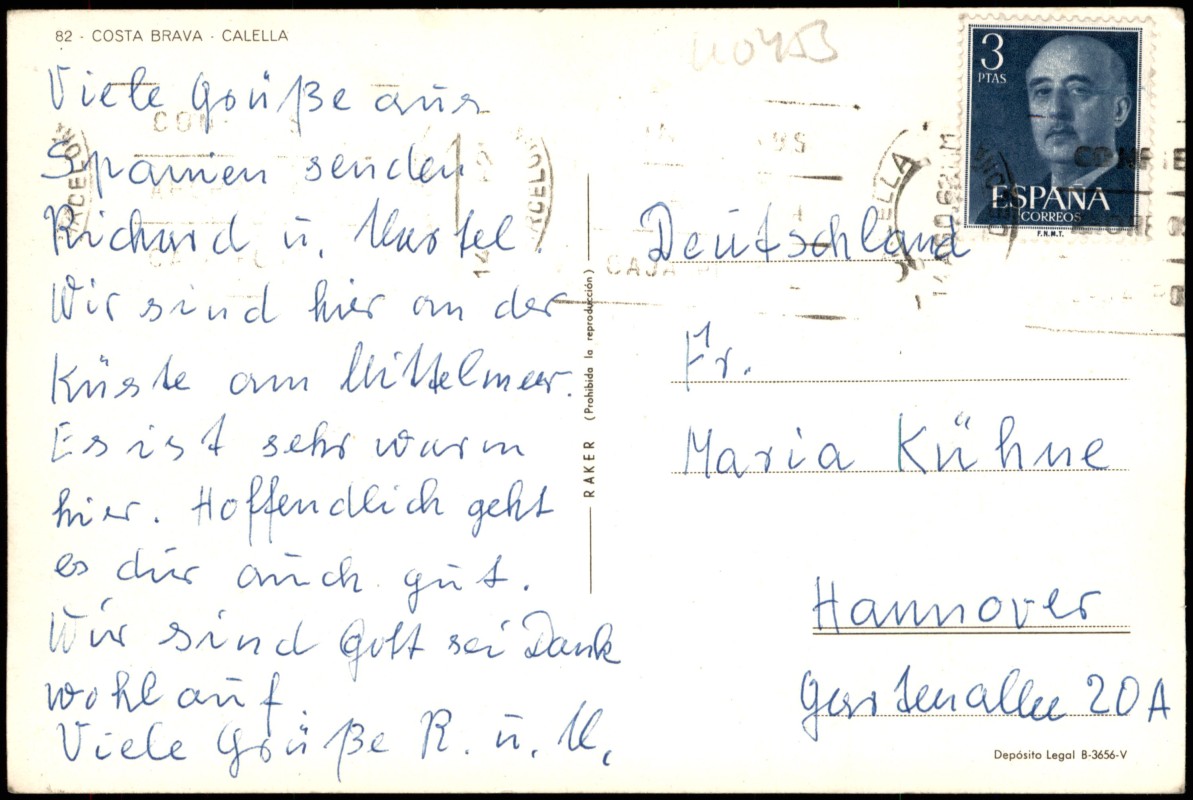 82 · COSTA BRAVA · CALELLA
Viele Grüße aus
Spanien senden
Richard u.
Wir sind hier an der
Küste am Mittelmeer.
Es ist sehr warm
hier. Hoffendlich geht
es dir auch gut.
Wir sind Gott sei Dank
wohl auf.
Viele Grüße R. u. M.
RAKER (Prohibida la reproducción)
3
PTAS
ESPAÑA
CORREOS
F.N.M.T.
Deutschland
Fr.
Maria Kühne
Hannover
Gartenallee 20A
Depósito Legal B-3656-V